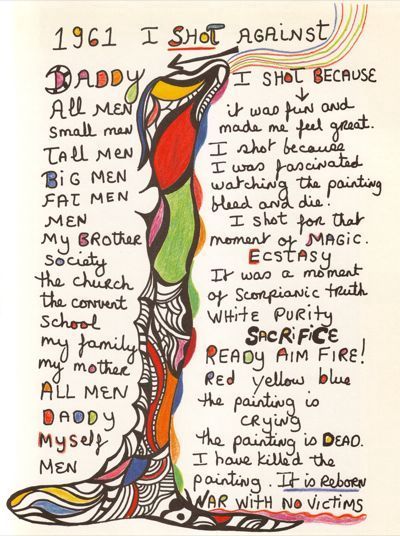 1961 I SHOT AGAINST
DADDY
All MEN
Small men
Tall MEN
BIG MEN
FAT MEN
MEN
My BRother
Society
the church
the convent
School
my family
my mother
ALL MEN
DADDY
Myself
MEN
I SHOT BECAUSE
it was fun and
made me feel great.
I shot because
I was fascinated
watching the painting
bleed and die.
I shot for that
moment of MAGIC.
ECSTASY
It was a moment
of Scorpianic truth
WHITE PURITY
SACRIFICE
READY AIM FIRE!
Red yellow blue
the painting is
crying
the painting is DEAD.
I have killed the
painting. It is REBORN
WAR WITH NO VICTIMS